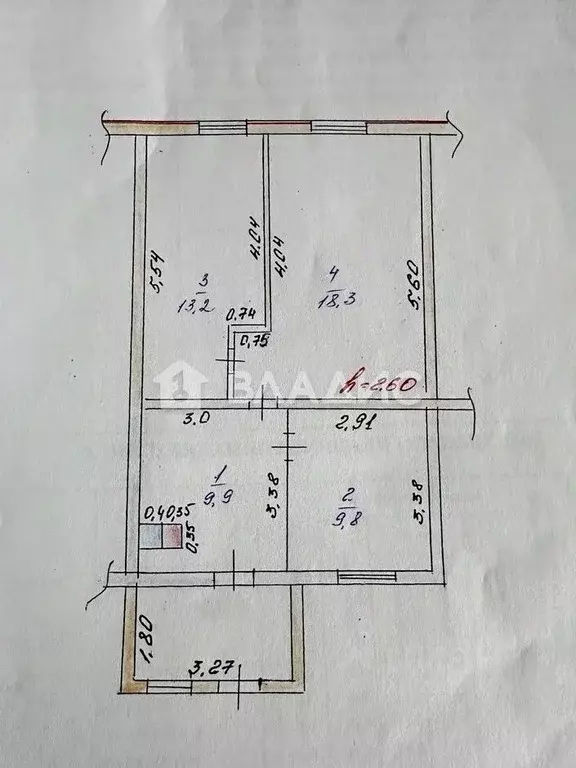 5,54
4.04
4,04
3
13,2
4
18,3
5,60
0,74
0,75
ВЛАДИС
h=2.60
3.0
2,91
1
9,9
3,38
2
9.8
3,38
0,4 0,35
0,35
1,80
3,27